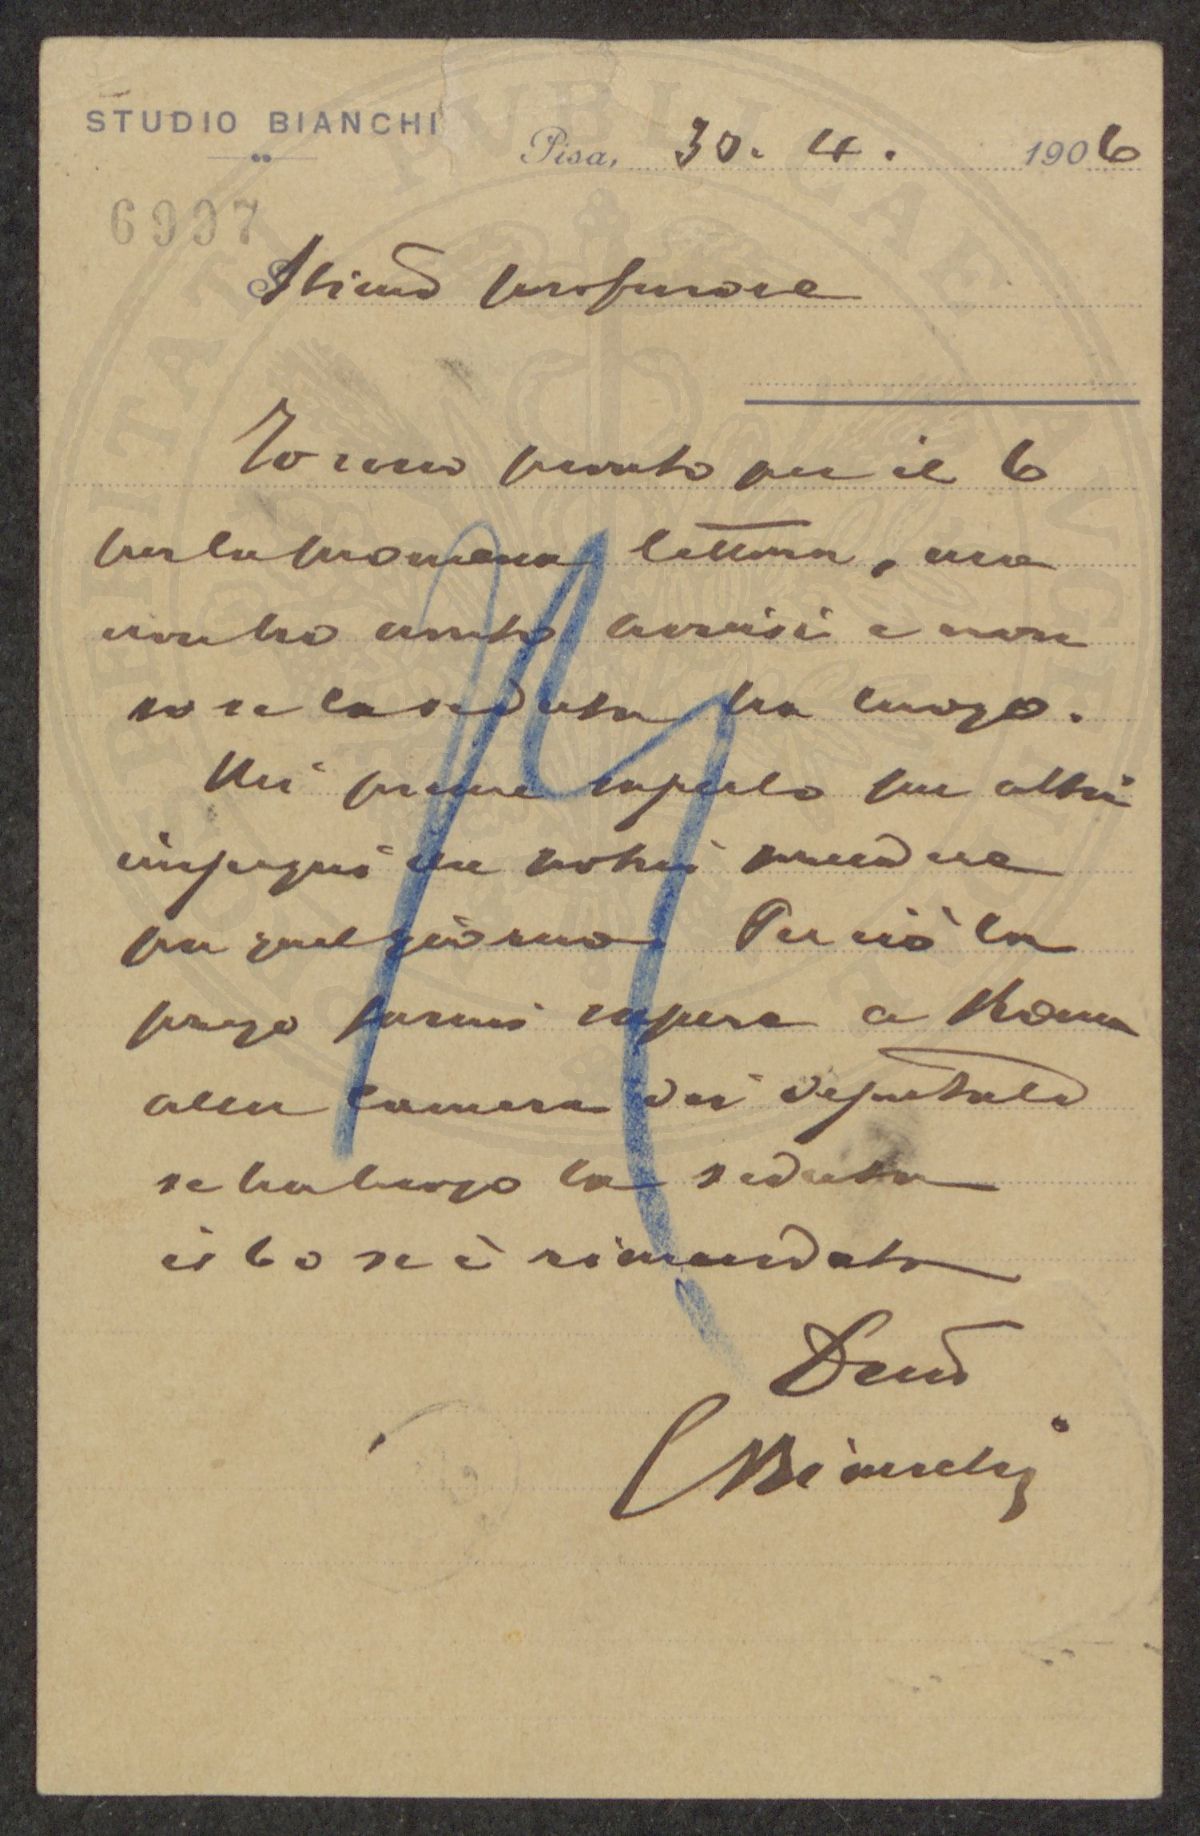 STUDIO BIANCHI
Pisa, 30. 4. 1906
6997
Stimo professore
Io sono pronto per il 6
per la promessa lettura, ma
non ho avuto avvisi e non
so se la seduta ha luogo.
Mi preme saperlo per altri
impegni che potrei prendere
per quel giorno. Perciò la
prego farmi sapere a Roma
alla Camera dei deputati
se ha luogo la seduta
il 6 o se è rimandata
Devmo
LBianchi